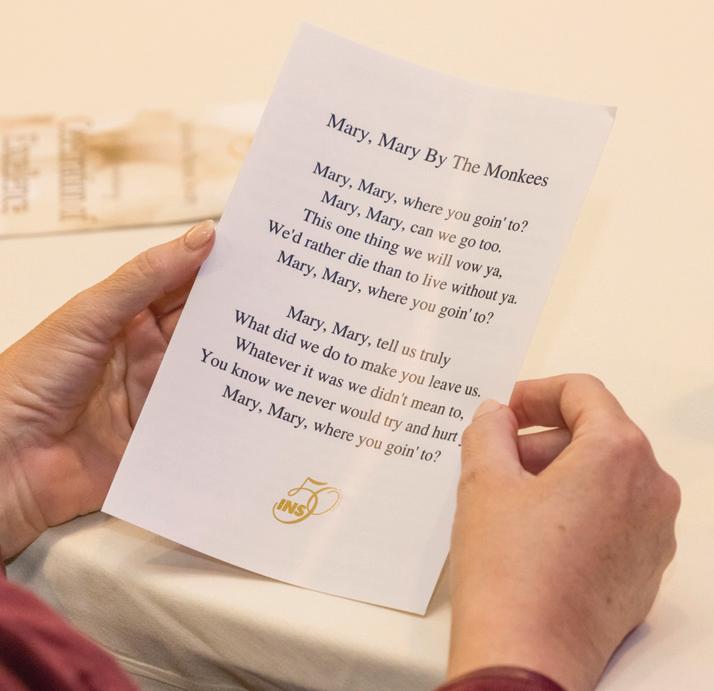 Mary, Mary By The Monkees
Mary, Mary, where you goin' to?
Mary, Mary, can we go too.
This one thing we will vow ya,
We'd rather die than to live without ya.
Mary, Mary, where you goin' to?
Mary, Mary, tell us truly
What did we do to make you leave us.
Whatever it was we didn't mean to,
You know we never would try and hurt
Mary, Mary, where you goin' to?
50
INS